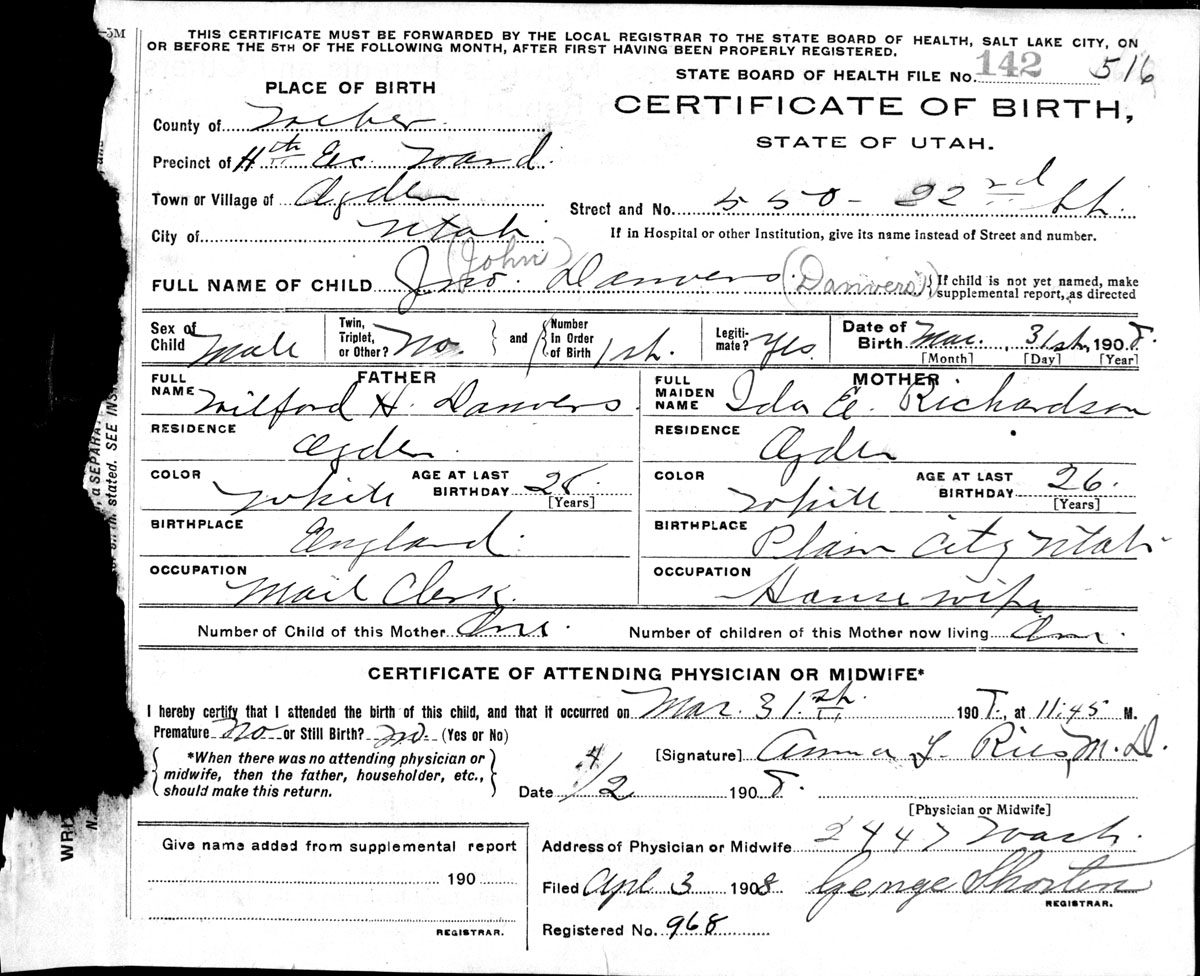 -5M
THIS CERTIFICATE MUST BE FORWARDED BY THE LOCAL REGISTRAR TO THE STATE BOARD OF HEALTH, SALT LAKE CITY, ON
OR BEFORE THE 5TH OF THE FOLLOWING MONTH, AFTER FIRST HAVING BEEN PROPERLY REGISTERED.
STATE BOARD OF HEALTH FILE No. 142 516
PLACE OF BIRTH
CERTIFICATE OF BIRTH,
STATE OF UTAH.
County of Weber
Precinct of 4th Ward
Town or Village of Ogden
Street and No. 550 - 22nd St.
City of Utah
If in Hospital or other Institution, give its name instead of Street and number.
FULL NAME OF CHILD Jno. (John) Danvers (Danvers) If child is not yet named, make
supplemental report, as directed
Sex of Child Male Twin, Triplet, or Other? No. and Number In Order of Birth 1st. Legiti-mate? Yes Date of Birth Mar. 31st, 1908.
[Month] [Day] [Year]
FATHER MOTHER
FULL NAME Wilford H. Danvers. FULL MAIDEN NAME Ida E. Richardson
RESIDENCE Ogden RESIDENCE Ogden
COLOR White AGE AT LAST BIRTHDAY 28. [Years] COLOR White AGE AT LAST BIRTHDAY 26. [Years]
BIRTHPLACE England. BIRTHPLACE Plain City Utah
OCCUPATION Mail Clerk. OCCUPATION House wife
Number of Child of this Mother One. Number of children of this Mother now living One.
CERTIFICATE OF ATTENDING PHYSICIAN OR MIDWIFE*
I hereby certify that I attended the birth of this child, and that it occurred on Mar. 31.st, 1908, at 11:45 M.
Premature No or Still Birth? No. (Yes or No)
*When there was no attending physician or
midwife, then the father, householder, etc.,
should make this return.
[Signature] Anna L. Ries, M.D.
Date 4/2 1908.
[Physician or Midwife]
Give name added from supplemental report
190
REGISTRAR.
Address of Physician or Midwife 2447 Wash.
Filed Apl 3 1908 George Shorten
REGISTRAR.
Registered No. 968
a SEPARA
stated. SEE INS
WRI
N.